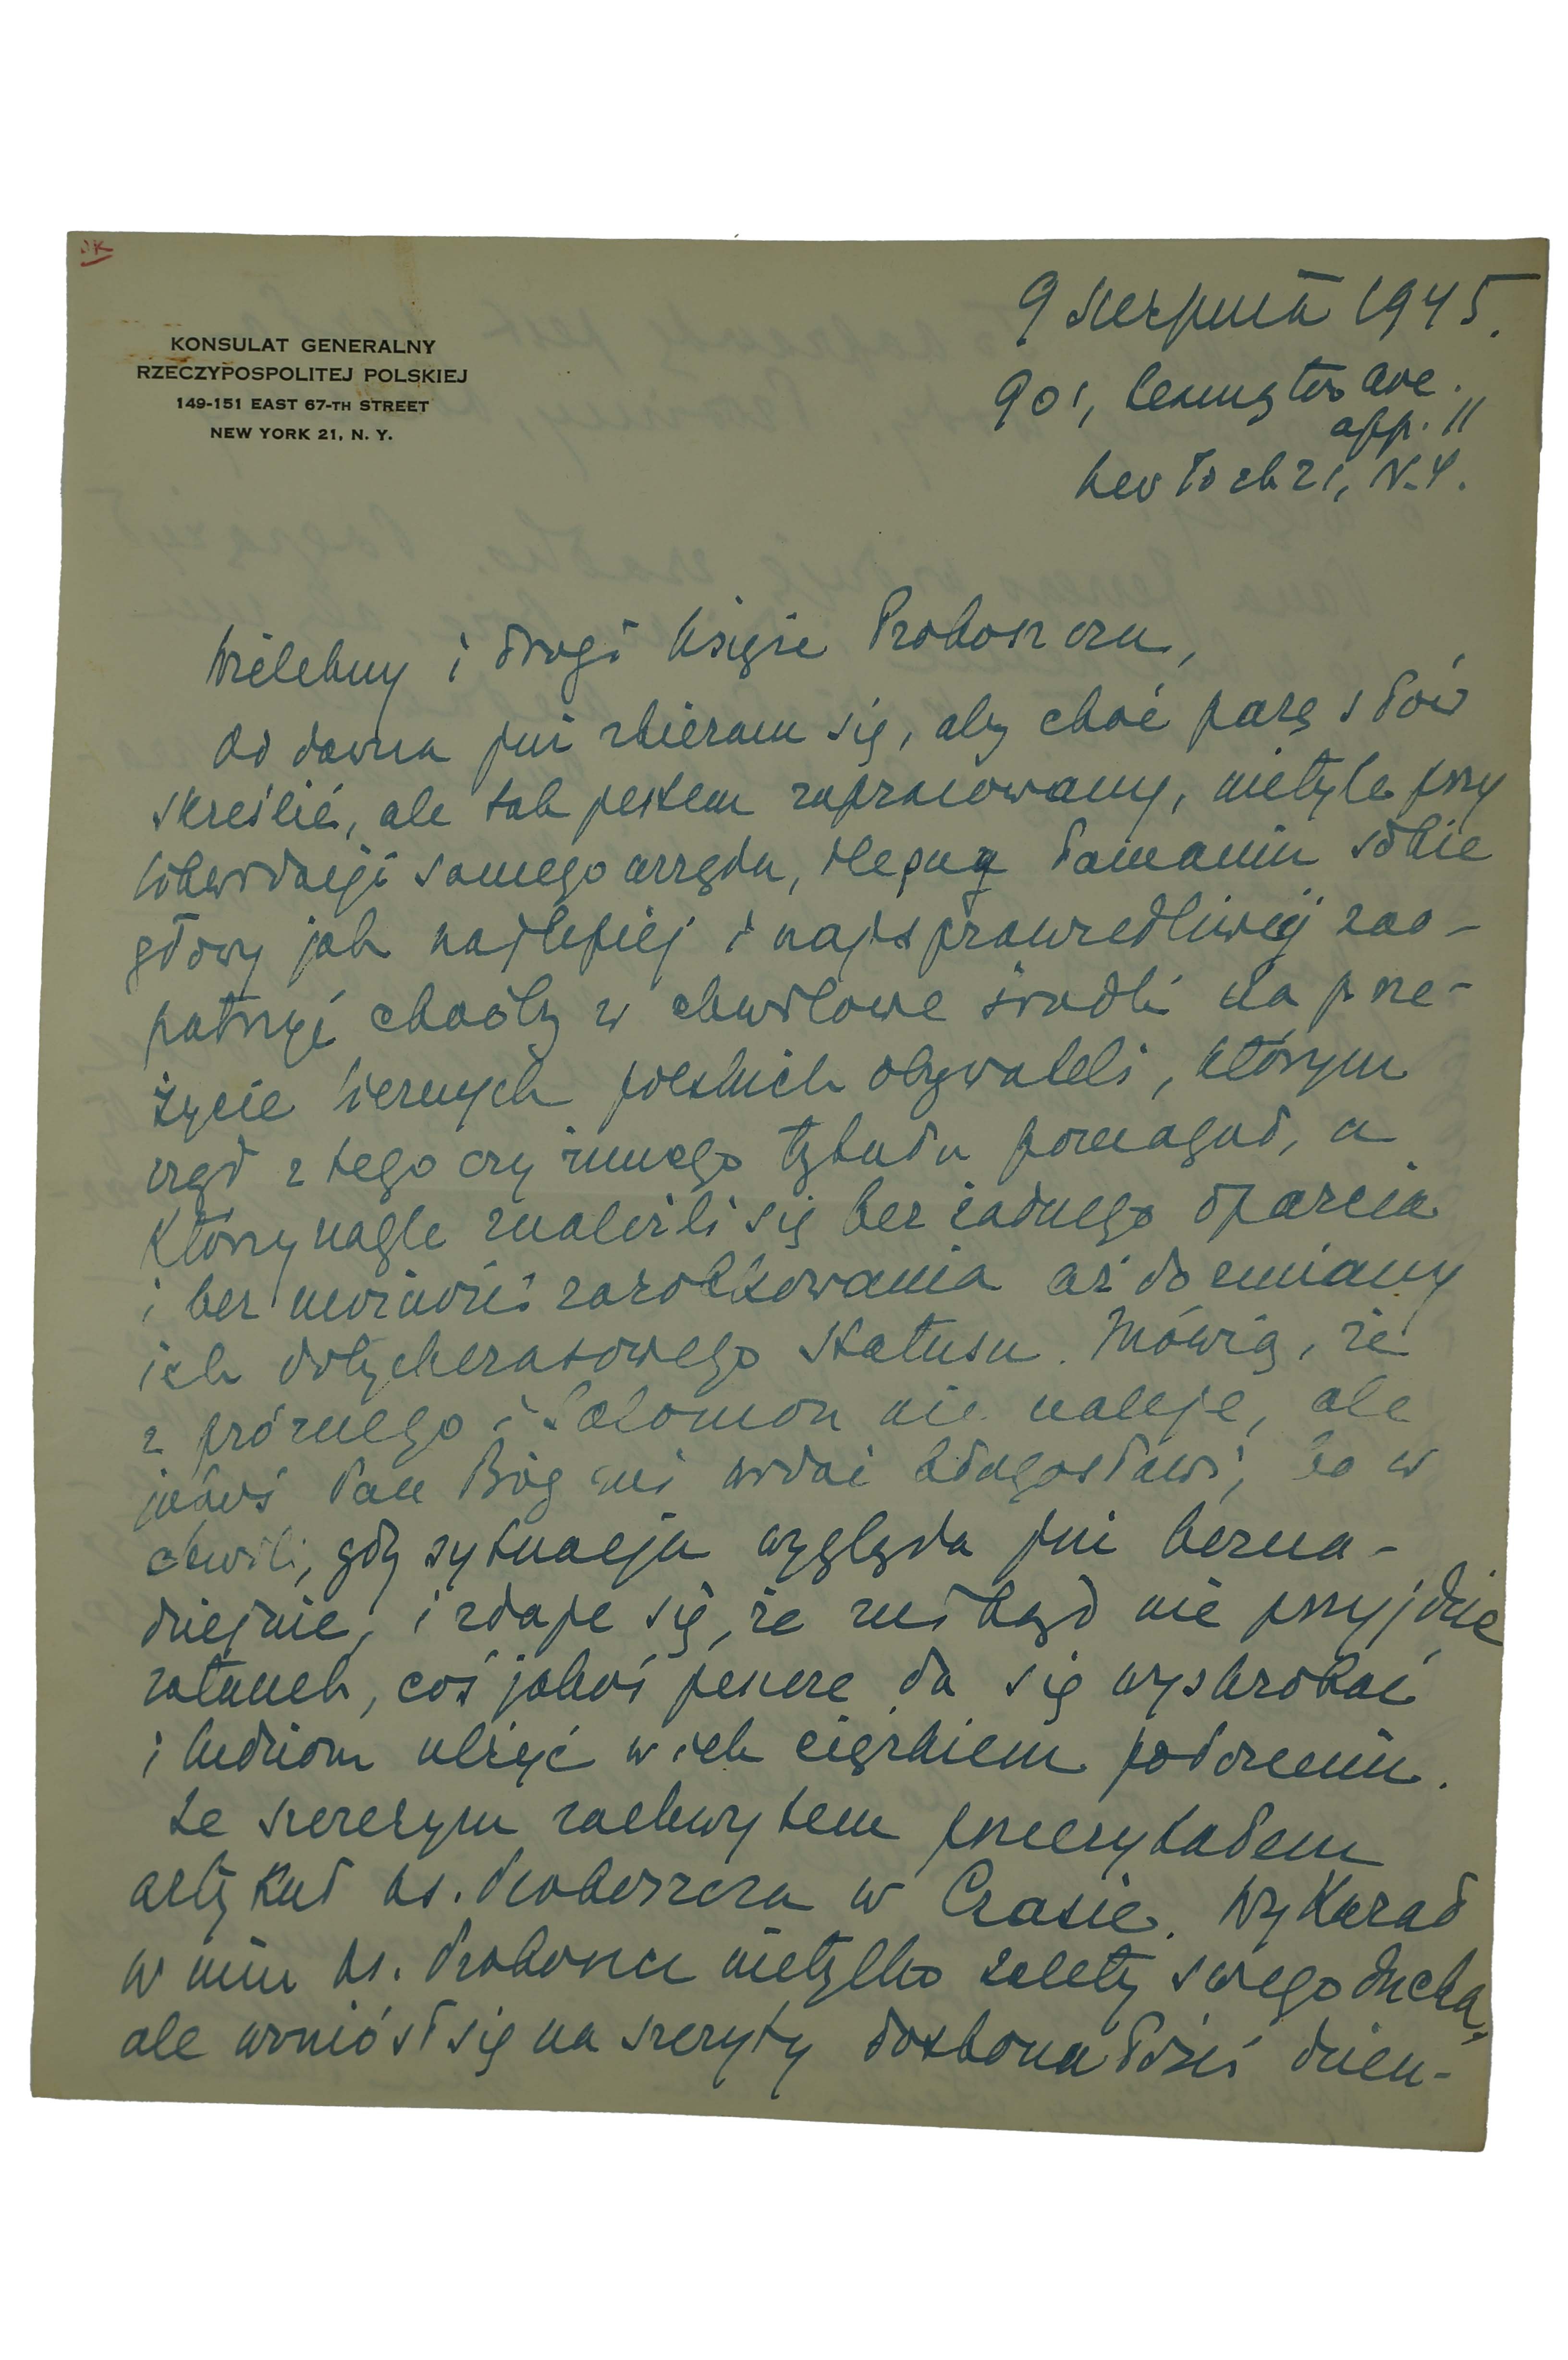 JK
KONSULAT GENERALNY
RZECZYPOSPOLITEJ POLSKIEJ
149-151 EAST 67-TH STREET
NEW YORK 21, N. Y.
9 sierpnia 1945.
901, Lexington Ave.
app. 11
New York 21, N.Y.
Wielebny i drogi Księże Proboszczu,
Od dawna już zbieram się, aby choć parę słów
skreślić, ale tak jestem zapracowany, nietyle przy
likwidacji samego urzędu, ile łamaniu sobie
głowy jak najlepiej i najsprawiedliwiej zao-
patrzyć choćby w chwilowe środki na prze-
życie wiernych polskich obywateli, którym
rząd z tego czy innego tytułu pomagał, a
którzy nagle znaleźli się bez żadnego oparcia
i bez możności zarobkowania aż do zmiany
ich dotychczasowego statusu. Mówią, że
z próżnego i Salomon nie naleje, ale
jakoś Pan Bóg mi widać błogosławi, bo w
chwili, gdy sytuacja wygląda już bezna-
dziejnie, i zdaje się, że znikąd nie przyjdzie
ratunek, coś jakoś jeszcze da się wyskrobać
i ludziom ulżyć w ich ciężkiem położeniu.
Ze szczerym zachwytem przeczytałem
artykuł ks. Proboszcza w Czasie. Wykazał
w nim ks. Proboszcz nietylko zalety swego ducha,
ale wzniósł się na szczyty doskonałości dzien-